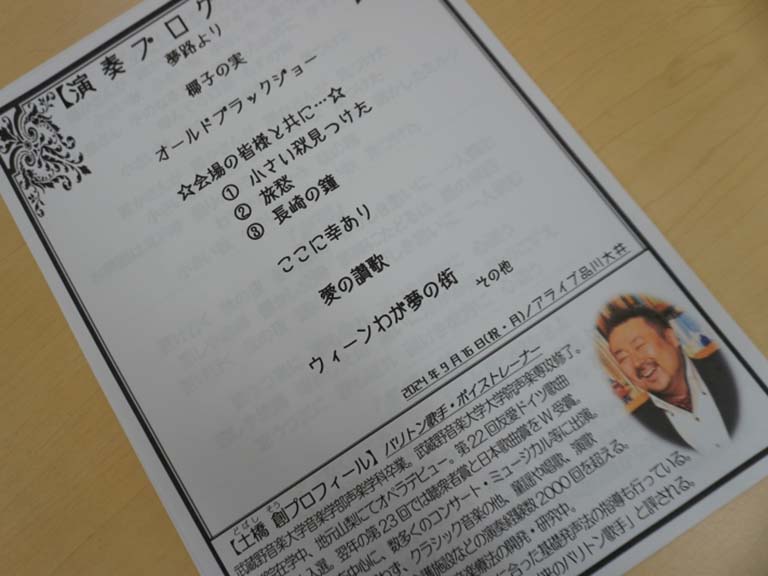 【演奏プログ
夢路より
椰子の実
オールドブラックジョー
☆会場の皆様と共に…☆
① 小さい秋見つけた
② 旅愁
③ 長崎の鐘
ここに幸あり
愛の讃歌
ウィーンわが夢の街 その他
2024年9月16日(祝・月)/アライブ品川大井
【土橋 創プロフィール】バリトン歌手・ボイストレーナー
どばし そう
武蔵野音楽大学音楽学部声楽学科卒業。武蔵野音楽大学大学院声楽専攻修了。
院在学中、地元山梨にてオペラデビュー。第22回友愛ドイツ歌曲
入選。翌年の第23回では聴衆賞と日本歌曲賞をW受賞。
中心に、数多くのコンサート・ミュージカル等に出演。
わず、クラシック音楽の他、童謡や唱歌、演歌
護施設などの演奏経験数2000回を超える。
音楽療法の開発・研究中。
に合った基礎発声法の指導も行っている。
のバリトン歌手」と評される。